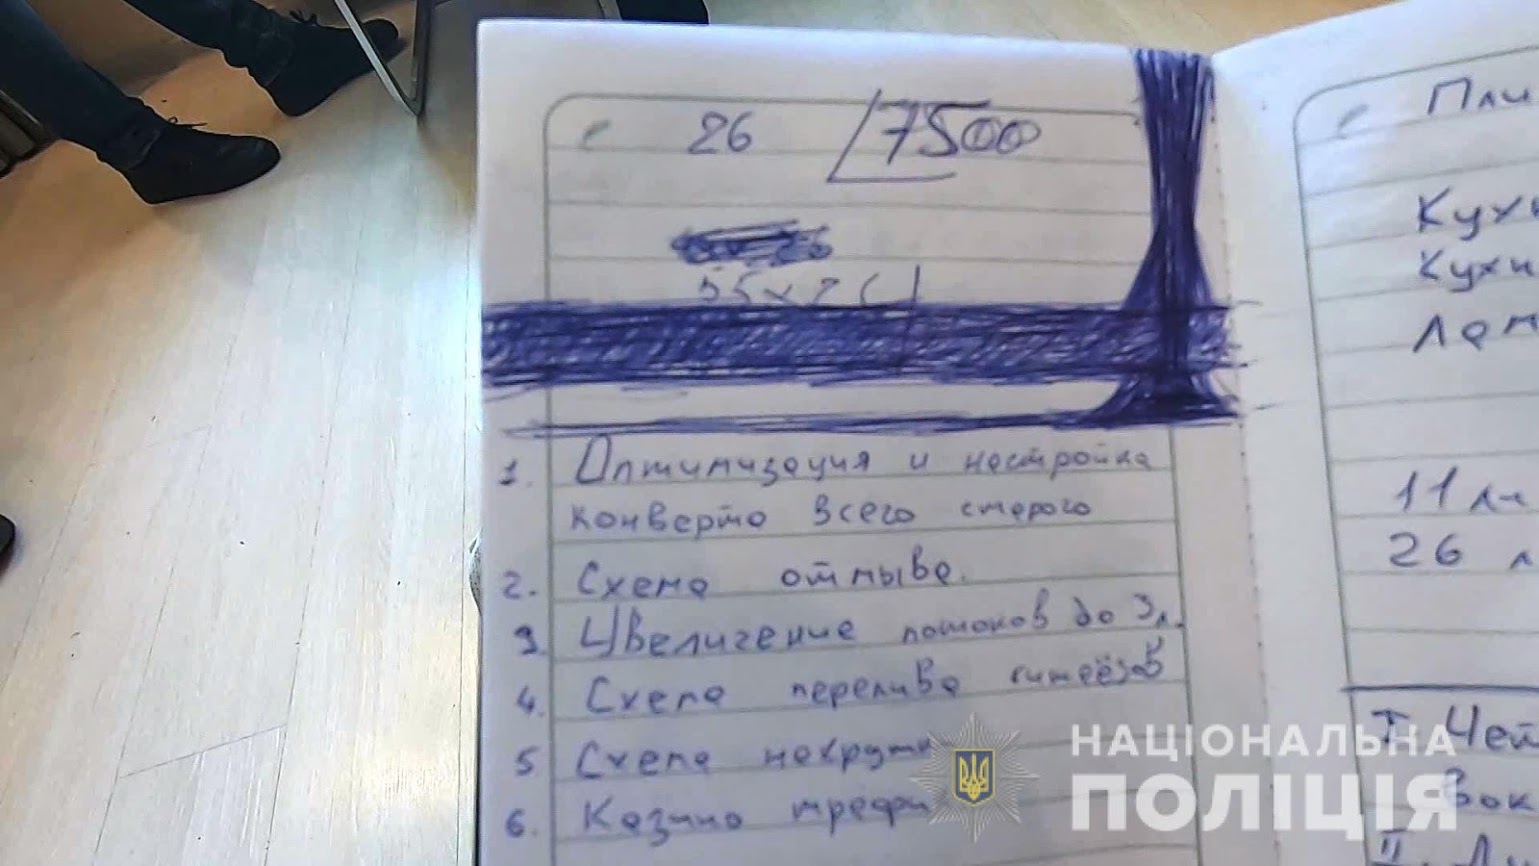 26 7500
55x2
1. Оптимизация и настройка
конверта всего старого
2. Схема отмыва.
3 Увеличение потоков до 3л.
4. Схема перелива
5 Схема накрутки
6. Казино
Пли
Кух
Кухн
Лам
11 лч
26 л
I Чет
Вок
II
НАЦІОНАЛЬНА
ПОЛІЦІЯ